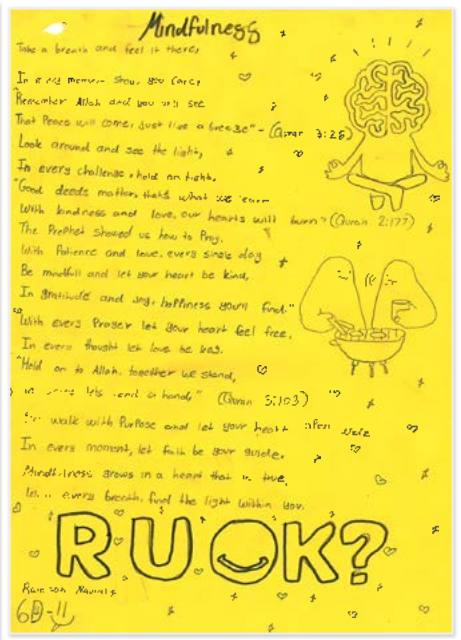 Mindfulness
Take a breath and feel it there,
In every moment show you care,
"Remember Allah and you will see
That Peace will come, just like a breeze" - (Quran 3:28)
Look around and see the light,
In every challenge, hold on tight.
"Good deeds matter, thats what we earn
With kindness and love, our hearts will burn" (Quran 2:177)
The Prophet showed us how to Pray.
With Patience and love, every single day
Be mindfull and let your heart be kind,
In gratitude and Joy, happiness you'll find."
"With every Prayer let your heart feel free,
In every thought let love be key.
"Hold on to Allah, together we stand,
lets lend a hand," (Quran 3:103)
walk with Purpose and let your heart open wide
In every moment, let faith be your guide.
Mindfulness grows in a heart that is true,
every breath, find the light within you.
R U OK?
6D-11